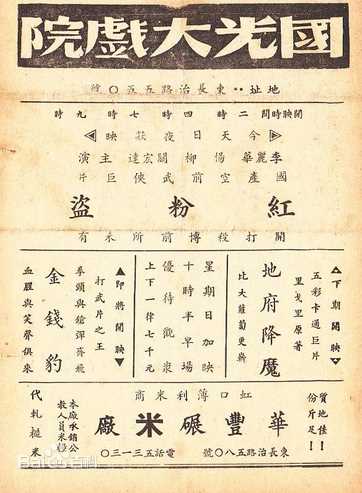 國光大戲院
地址：東長治路五五〇號
開映時間 二時 四時 七時 九時
今天日夜獻映
李麗華 楊柳 關宏達 主演
國產空前武俠巨片
紅粉盜
開打程博前所未有
▲下期開映▼
五彩卡通巨片
里戈里原著
地府降魔
比大蘿蔔更新
星期日加映
十時半早場
優待觀衆
上下一律七千元
▲即將開映▼
打武片之王
拳頭與鎗彈齊飛
金錢豹
血腥與笑聲俱來
質地佳！
份斤足！
虹口薄利米商
華豐碾米廠
東長治路五八〇號 電話五三一三〇
本廠承銷公
教人員米
代軋糙米
Bai百科